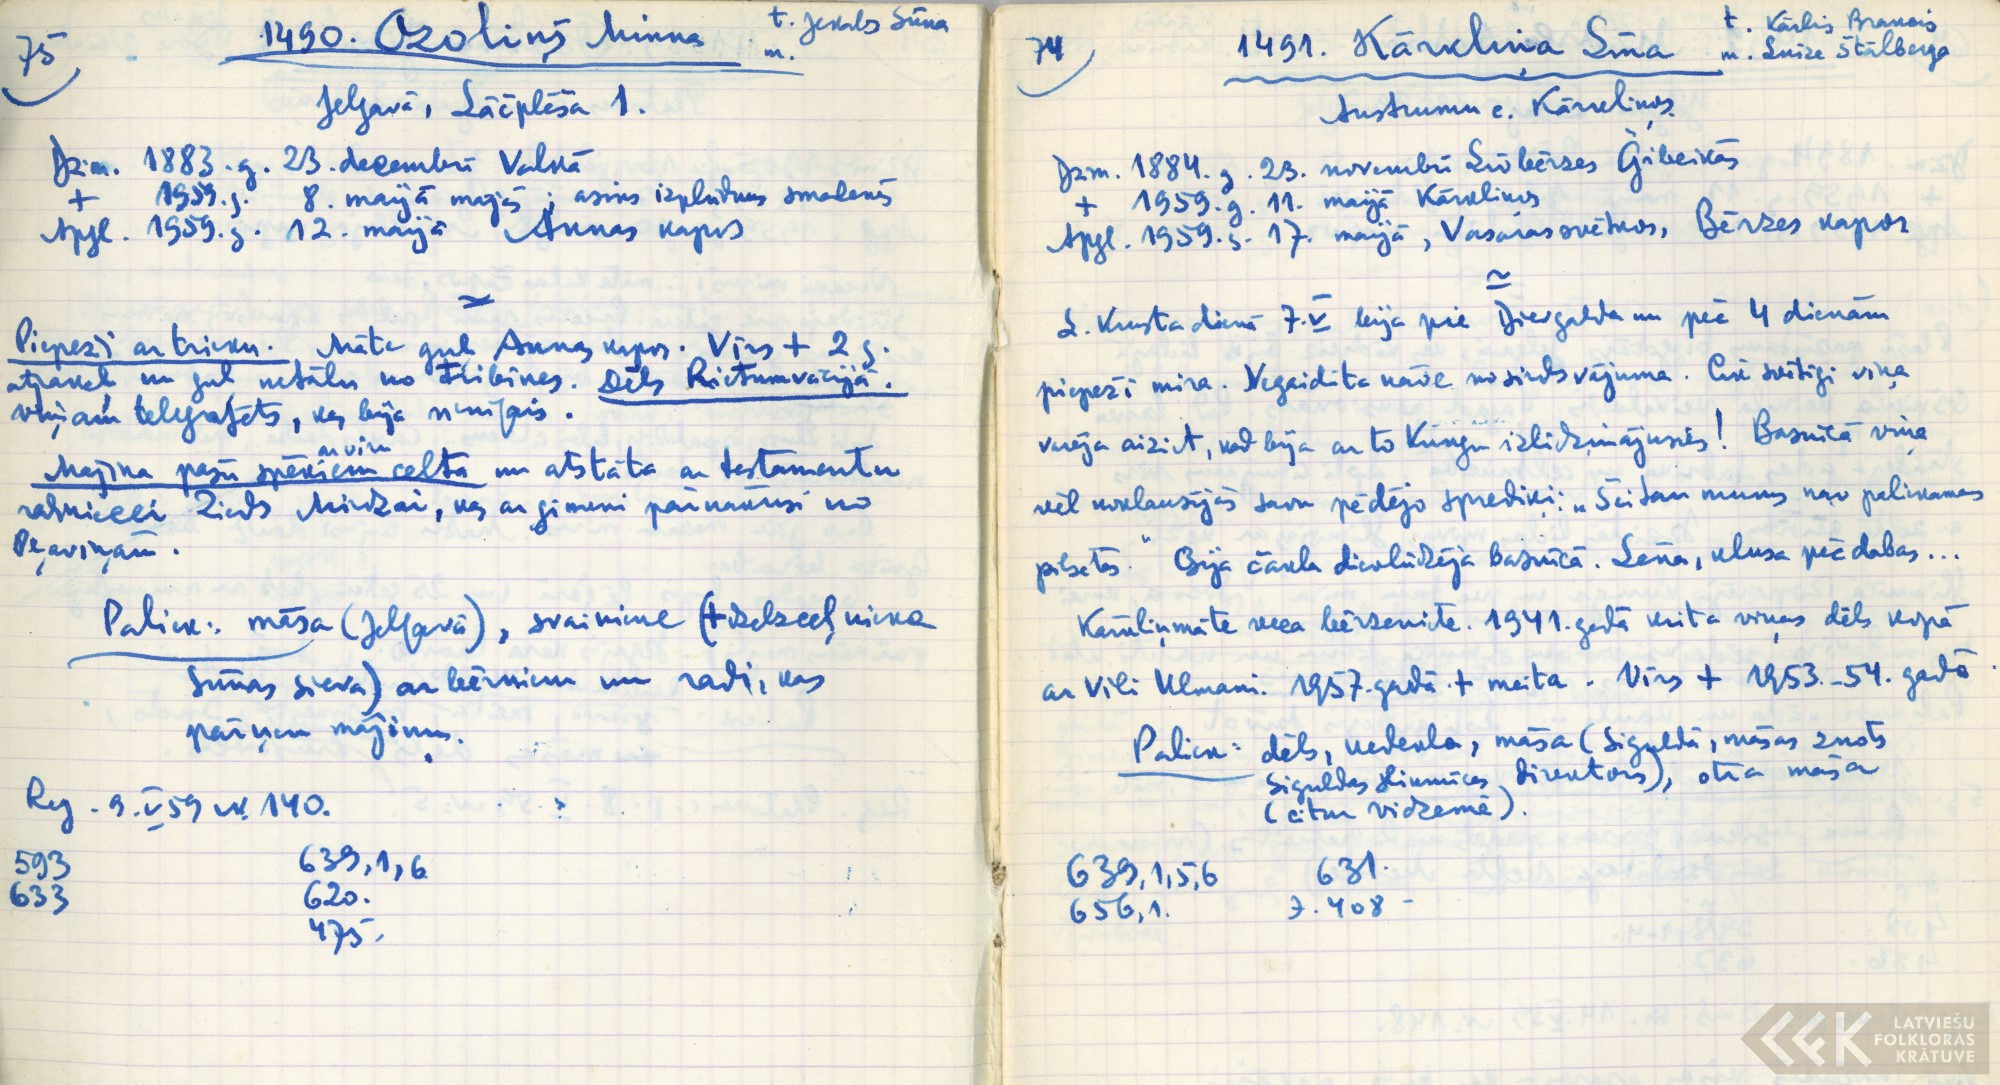 75
1490. Ozoliņš Minna
t. Jekabs Sūna
m.
Jelgavā, Lāčplēša 1.
Dzim. 1883. g. 23. decembrī Valkā
+ 1959. g. 8. maijā mājās; asins izplūdums smadzenēs
Apgl. 1959. g. 12. maijā Annas kapos
Piepeži ar trieku. Māte gul Annas kapos. Vīrs + 2 g.
atpakaļ un gul netālu no . Dēls Rietumvācijā.
viņam telegrafēts, kas bija
ar vīru
Mājiņa pašu spēkiem celta un atstāta ar testamentu
radniecei Mirdzai, kas ar ģimeni pārnākusi no
Pļaviņām.
Paliek: māsa (Jelgavā), svainiene (+ dzelzceļnieka
Sūnas sieva) ar bērniem un radi, kas
pārņem mājiņu.
Reg. 9. V 59 nr. 140.
593 639,1,6
633 620.
475.
74
1491. Kārkliņa Līna
t. Kārlis
m. Luize Štālberga
Austrumu c. Kārkliņos.
Dzim. 1884. g. 23. novembrī Līvbērzes Ģibeikās
+ 1959. g. 11. maijā Kārkliņos
Apgl. 1959. g. 17. maijā, Vasarassvētkos, Bērzes kapos
L. Krusta dienā 7. V bija pie Dievgalda un pēc 4 dienām
piepeži mira. Negaidīta nāve no sirds vājuma. Cik svētīgi viņa
varēja aiziet, kad bija ar to Kungu izlīdzinājusies! Baznīcā viņa
vēl noklausījās savu pēdējo sprediķi: „Šeitan mums nav paliekamas
pilsētas." Bija čakla dievlūdzēja baznīcā. Lēna, klusa pēc dabas...
Kārkliņmāte veca bērzeniete. 1941. gadā krita viņas dēls kopā
ar Vili Ulmani. 1957. gadā + meita. Vīrs + 1953.-54. gadā.
Paliek: dēls, vedekla, māsa (Siguldā, māsas znots
Siguldas slimnīcas direktors), otra māsa
(citur Vidzemē).
639,1,5,6 631.
656,1. 7.408
LATVIEŠU
FOLKLORAS
KRĀTUVE